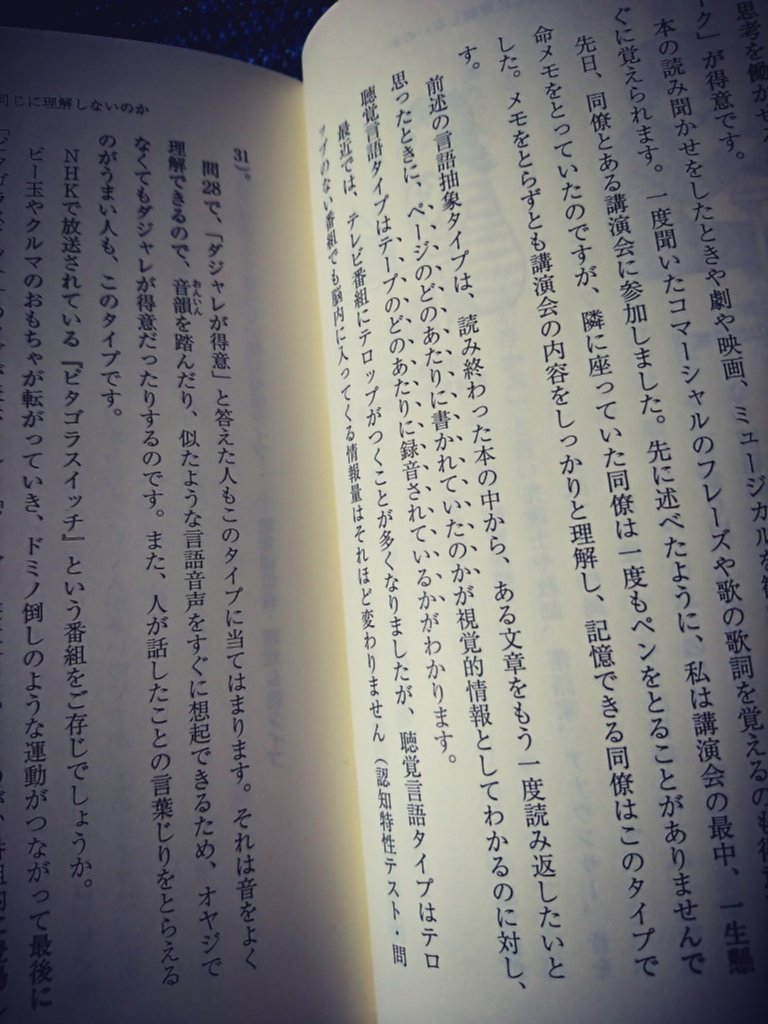 思考を働かせる
ク」が得意です。
本の読み聞かせをしたときや劇や映画、ミュージカルを
ぐに覚えられます。一度聞いたコマーシャルのフレーズや歌の歌詞を覚えるのも得意
先日、同僚とある講演会に参加しました。先に述べたように、私は講演会の最中、一生懸
命メモをとっていたのですが、隣に座っていた同僚は一度もペンをとることがありませんで
した。メモをとらずとも講演会の内容をしっかりと理解し、記憶できる同僚はこのタイプで
す。
前述の言語抽象タイプは、読み終わった本の中から、ある文章をもう一度読み返したいと
思ったときに、ページのどのあたりに書かれていたのかが視覚的情報としてわかるのに対し、
聴覚言語タイプはテープのどのあたりに録音されているかがわかります。
最近では、テレビ番組にテロップがつくことが多くなりましたが、聴覚言語タイプはテロ
ップのない番組でも脳内に入ってくる情報量はそれほど変わりません（認知特性テスト・問
同じに理解しないのか
31）。
問28で、「ダジャレが得意」と答えた人もこのタイプに当てはまります。それは音をよく
理解できるので、音韻を踏んだり、似たような言語音声をすぐに想起できるため、オヤジで
おんいん
なくてもダジャレが得意だったりするのです。また、人が話したことの言葉じりをとらえる
のがうまい人も、このタイプです。
NHKで放送されている『ピタゴラスイッチ』という番組をご存じでしょうか。
ビー玉やクルマのおもちゃが転がっていき、ドミノ倒しのような運動がつながって最後に